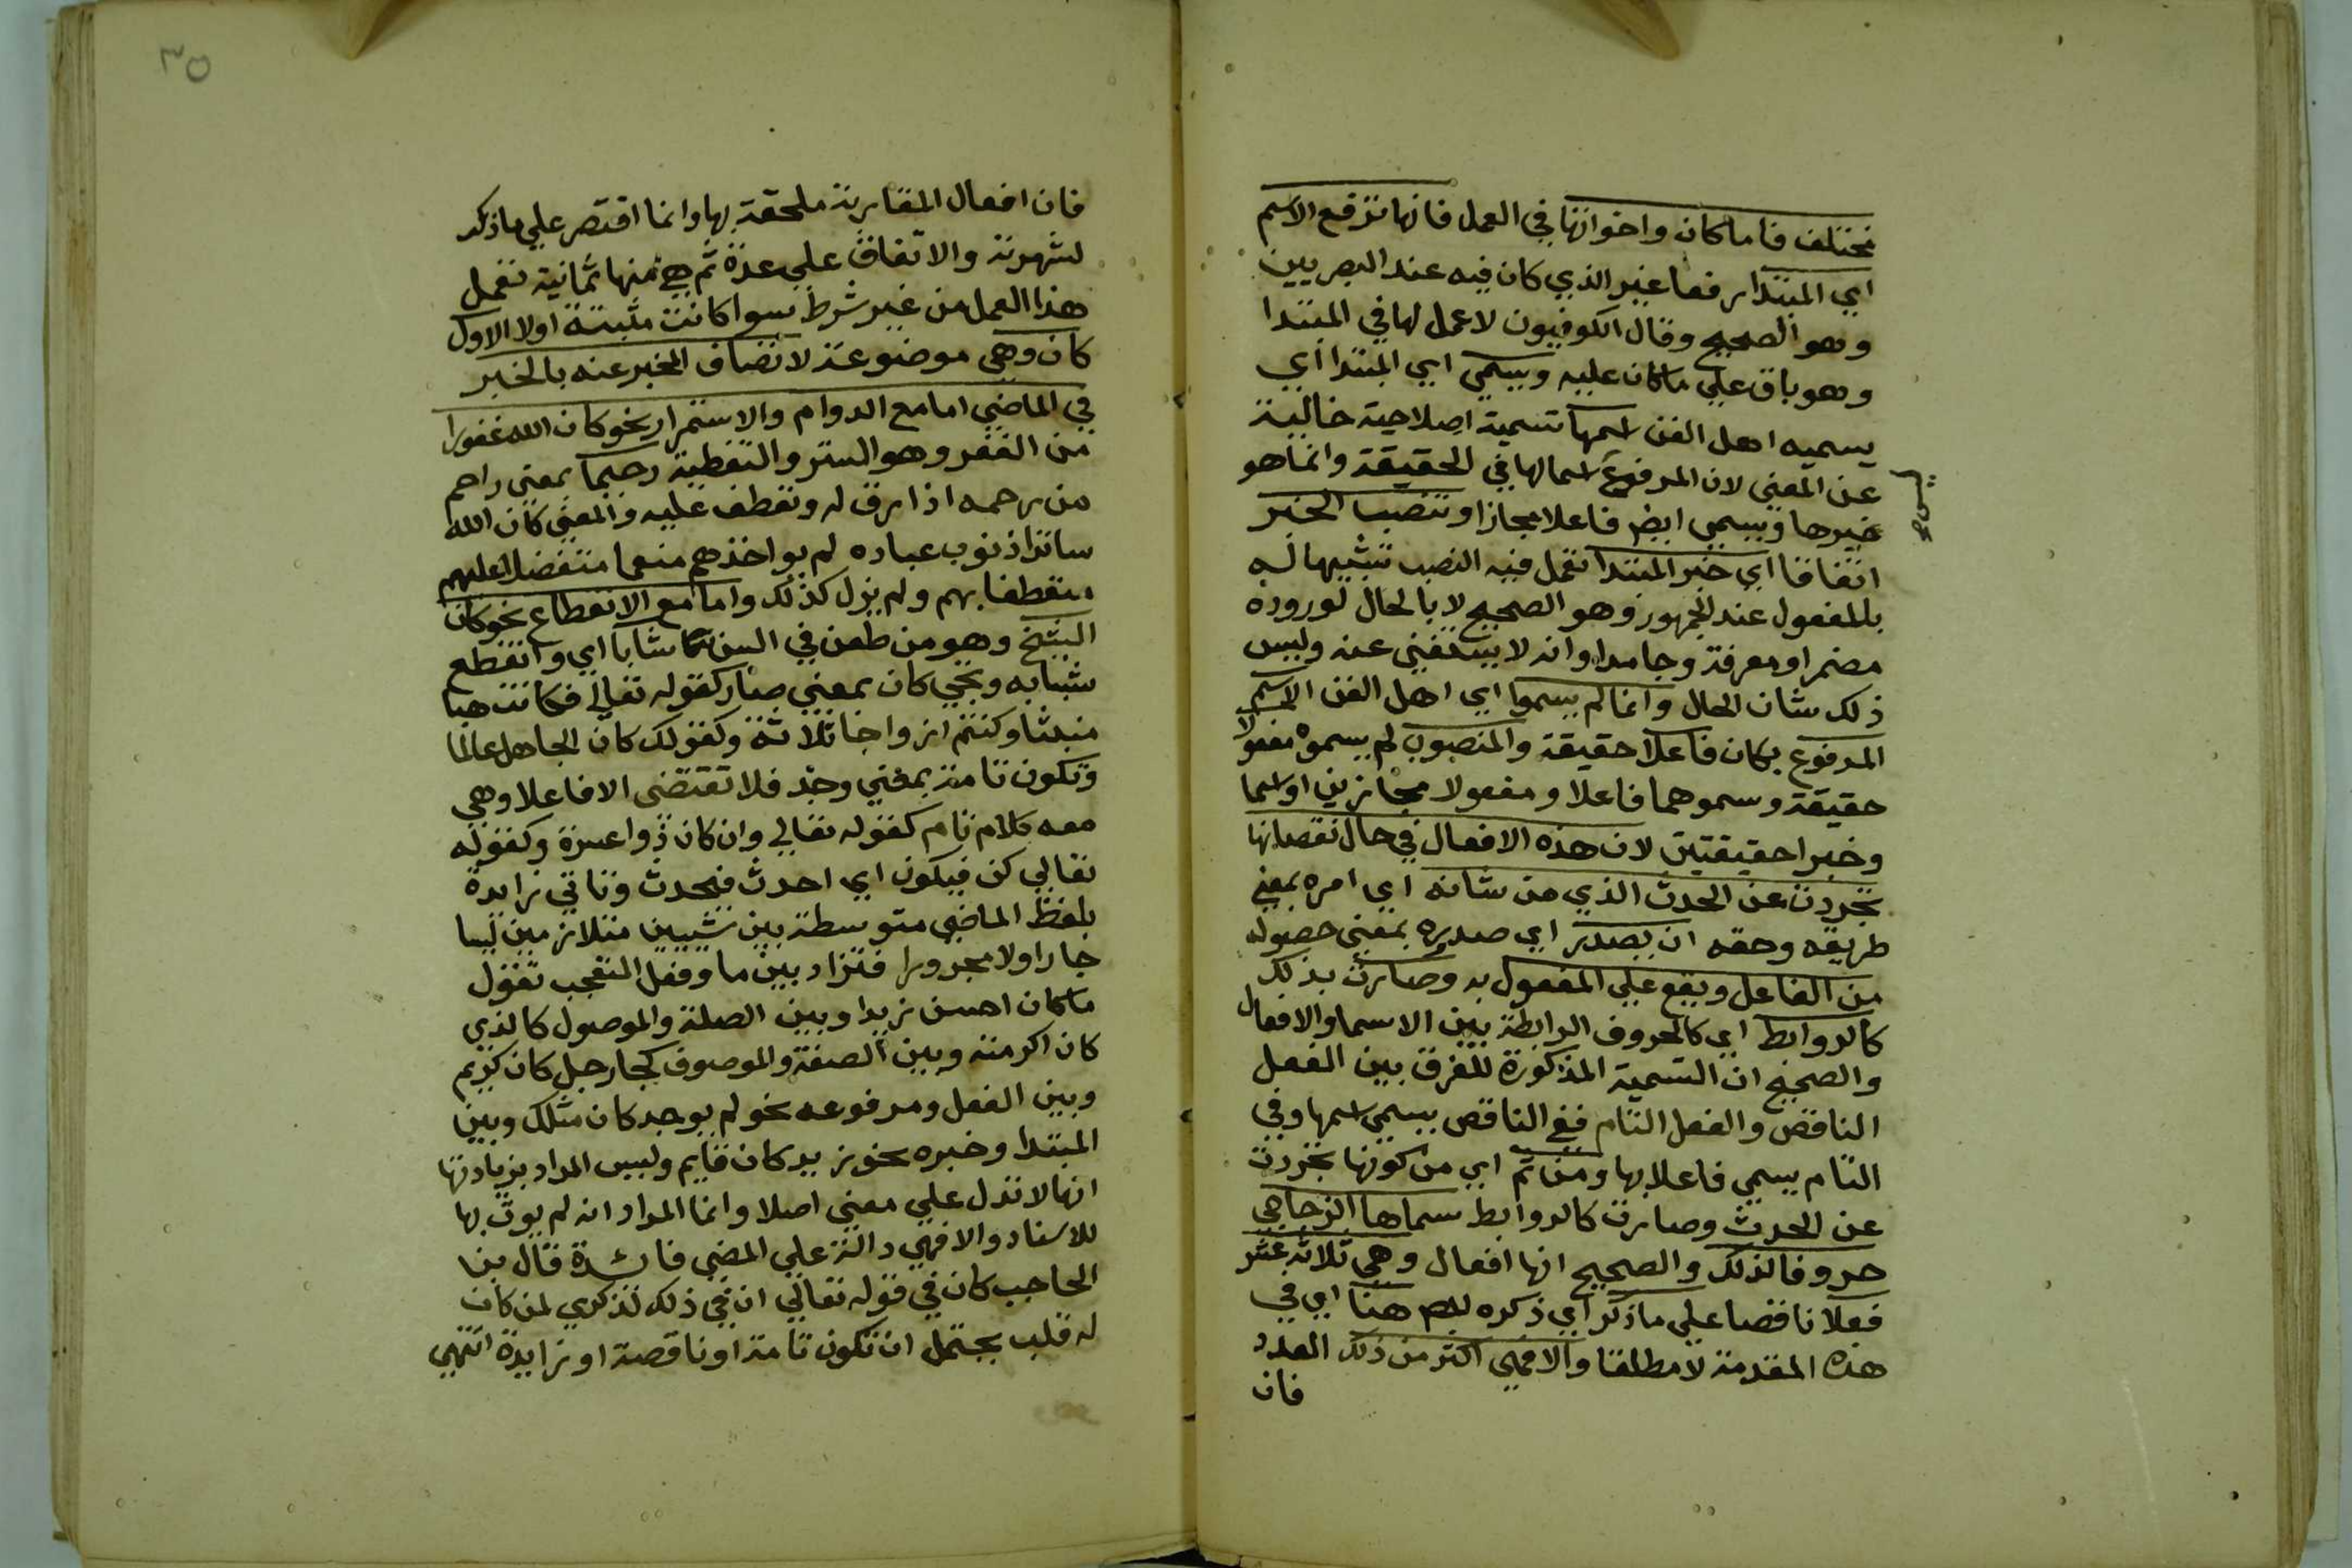 مختلف فاما كان واخواتها في العمل فانها ترفع الاسم
اي المبتدا رفعا غير الذي كان فيه عند البصريين
وهو الصحيح وقال الكوفيون لا عمل لها في المبتدا
وهو باق علي ما كان عليه ويسمي اي المبتدا اي
يسميه اهل الفن اسمها تسمية اصلاحية خالية
عن المعني لان المرفوع اسما لها في الحقيقة وانما هو
خيرها ويسمي ايضا فاعلا مجازا وتنصب الخبر
اتفاقا اي خبر المبتدا تعمل فيه النصب تشبيها له
بالمفعول عند الجمهور وهو الصحيح لا بالحال لوروده
مضمرا ومعرفة وجامدا وانه لا يستغني عنه وليس
ذلك شان الحال وانما لم يسموا اي اهل الفن الاسم
المرفوع بكان فاعلا حقيقة والمنصوب لم يسموه مفعولا
حقيقة وسموهما فاعلا ومفعولا مجازين او اسما
وخبرا حقيقتين لان هذه الافعال في حال نقصانها
تجردت عن الحدث الذي من شانه اي امره بمعني
طريقه وحقه ان يصدر اي صدوره بمعني حصوله
من الفاعل ويقع علي المفعول به وصارت بذلك
كالروابط اي كالحروف الرابطة بين الاسما والافعال
والصحيح ان التسمية المذكورة للفرق بين الفعل
الناقص والفعل التام ففي الناقص يسمي اسمها وفي
التام يسمي فاعلا بها ومن ثم اي من كونها تجردت
عن الحدث وصارت كالروابط سماها الزجاجي
حروفا لذلك والصحيح انها افعال وهي ثلاثة عشر
فعلا ناقصا علي ما ذكر اي ذكره هنا اي في
هذه المقدمة لا مطلقا والا فهي اكثر من ذلك العدد
فان
٣٥
فان افعال المقاربة ملحقة بها وانما اقتصر علي ما ذكر
لشهرته والاتفاق علي عدة ثم هي منها ثمانية تعمل
هذا العمل من غير شرط سوا كانت مثبتة اولا الاول
كان وهي موضوعة لاتصاف المخبر عنه بالخبر
في الماضي اما مع الدوام والاستمرار نحو كان الله غفورا
من الغفر وهو الستر والتغطية رحيما بمعني راحم
من رحمه اذا رق له وتعطف عليه والمعني كان الله
ساترا ذنوب عباده لم يواخذهم منعما متفضلا عليهم
متعطفا بهم ولم يزل كذلك واما مع الانقطاع نحو كان
الشيخ وهو من طعن في السن شابا اي وانقطع
شبابه ويجي كان بمعني صار كقوله تعالي فكانت هبا
منبثا وكنتم ازواجا ثلاثة وكقولك كان الجاهل عالما
وتكون تامة بمعني وجد فلا تقتضي الا فاعلا وهي
معه كلام تام كقوله تعالي وان كان ذوا عسرة وكقوله
تعالي كن فيكون اي احدث فيحدث وتاتي زايدة
بلفظ الماضي متوسطة بين شيين متلازمين ليسا
جارا ولا مجرورا فتزاد بين ما وفعل التعجب تقول
ما كان احسن زيدا وبين الصلة والموصول كالذي
كان اكرمته وبين الصفة والموصوف كجا رجل كان كريم
وبين الفعل ومرفوعه نحو لم يوجد كان مثلك وبين
المبتدا وخبره نحو زيد كان قايم وليس المراد بزيادتها
انها لا تدل علي معني اصلا وانما المراد انه لم يوت بها
للاسناد والا فهي دالة علي المضي فائدة قال بن
الحاجب كان في قوله تعالي ان في ذلك لذكري لمن كان
له قلب يحتمل ان تكون تامة او ناقصة او زايدة انتهي